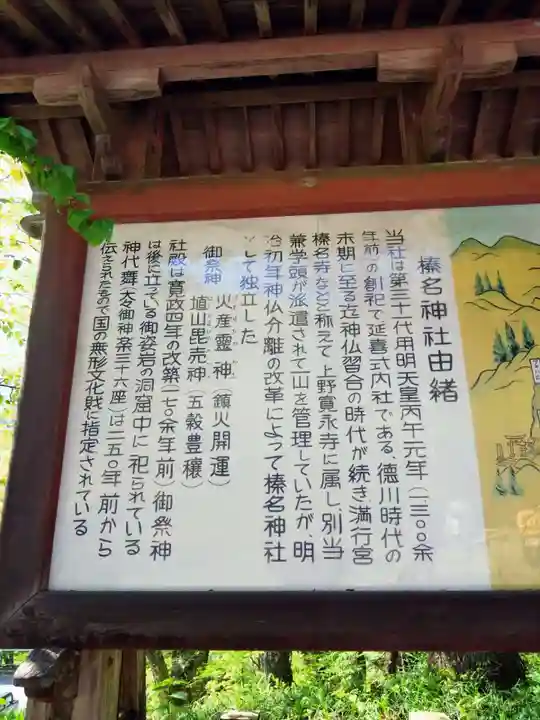 榛名神社由緒
当社は第三十代用明天皇丙午元年(一三〇〇余
年前)の創祀で延喜式内社である、徳川時代の
末期に至る立神仏習合の時代が続き、満行宮
榛名寺などと称えて上野寛永寺に属し、別当
兼学頭が派遣されて山を管理していたが、明
治初年神仏分離の改革によって榛名神社
して独立した
御祭神 火産霊神(鎮火開運)
埴山毘売神(五穀豊穣)
社殿は寛政四年の改築(一七〇余年前)御祭神
は後に立っている御姿岩の洞窟中に祀られている
神代舞(太々御神楽三十六座)は二五〇年前から
伝えられたもので国の無形文化財に指定されている